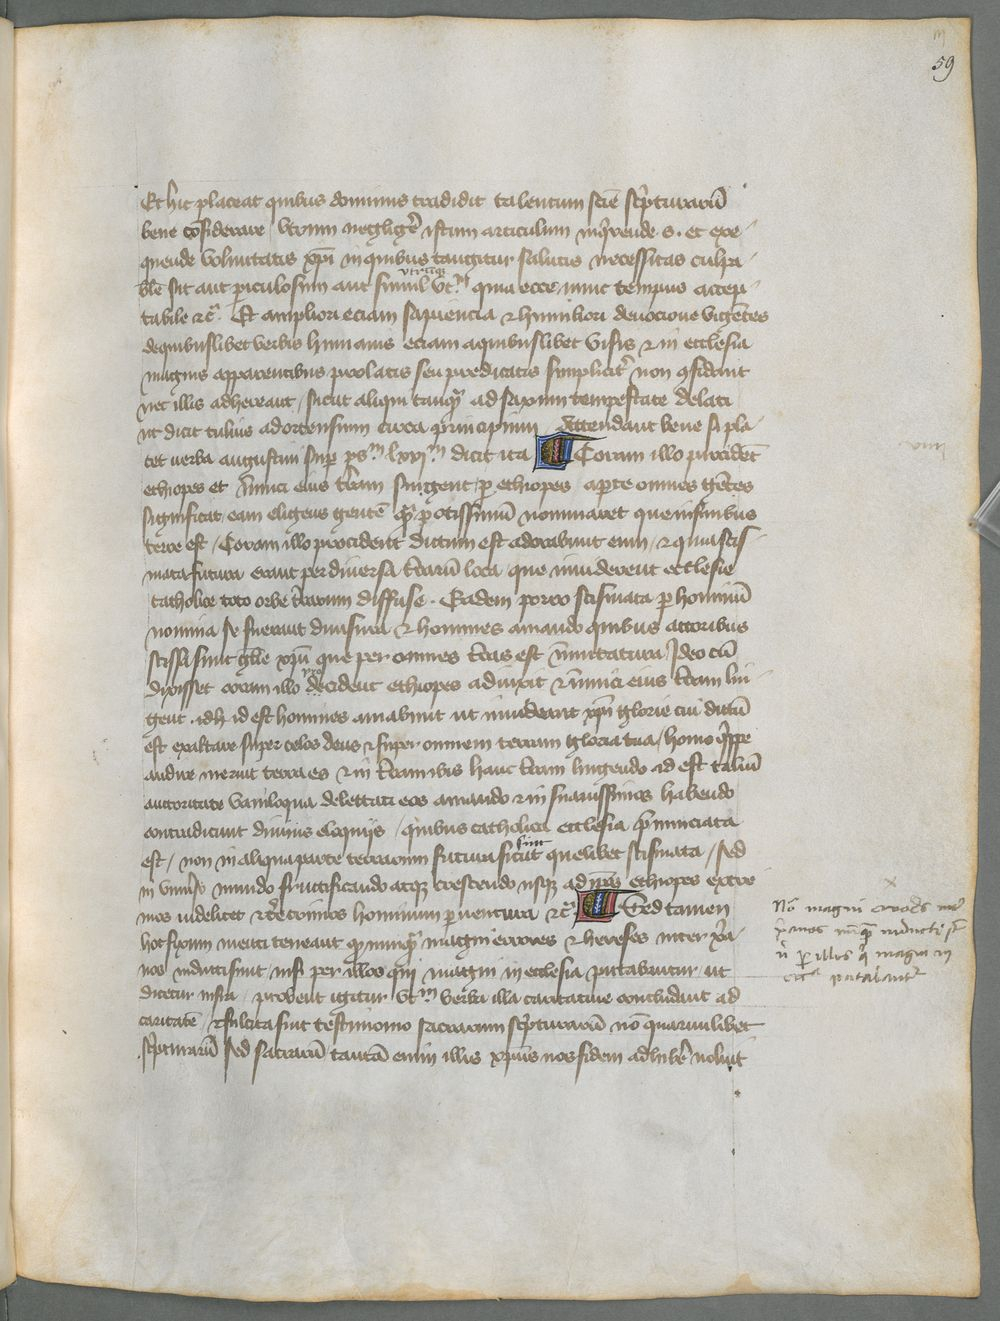 59
Et hic placeat quibus dominus tradidit talentum scīe scripturarū
bene cōsiderare Utrum negligē istum articulum inquirende .s. et exe
quende voluntatis xpī in quibus tangitur salutis necessitas culpa
utrūque
blē sit aut periculosum aut simul quia ecce nunc tempus accep
tabile ⁊c̄ . Et ampliori eciam sapiencia ⁊ humiliori deuocione
de quibuslibet verbis humanis eciam a quibuslibet visis ⁊ in ecclesia
magnis apparentibus prolatis seu predicatis simplicitʼ non cōfidant
nec illis adhereant / sicut aliqui tanqʼ ad saxum tempestate delati
ut dicit tulius ad ortensium circa principium Attendant bene si pla
cet verba augustini sup psm lxxim dicit ita Coram illo procidēt
ethiopes et īnimici eius tʼram lingent / per ethiopes aperte omnes gētes
significat / eam eligens gentē que in finibus
terre est / Coram illo procident dictum est adorabunt eum / ⁊ quia scis
mata futura erant per diversa tʼrarū loca / que inviderent ecclesie
catholice toto orbe tʼrarum diffuse . Eadem porro scismata per hominū
nomina se fuerant divisura ⁊ homines amando quibus actoribus
scissi sunt que per omnes tʼras est Ideo cū
pro
dixisset coram illo decident ethiopes adiunxit ⁊ īnimici eius tʼram lin
gent id est homines amabunt ut invideant xpī glorie cui dictū
est exaltare super celos deus ⁊ super omnem terram gloria tua / homo qippe
audire meruit terra es ⁊ in tʼram ibis hanc tʼram lingendo id est taliū
auctoritate vaniloqua delectati eos amando ⁊ in suauissimos habendo
contradicunt divinis eloquijs / quibus catholica ecclesia p̄nunciata
sunt
est / non in aliqua parte terrarum futura sicut quelibet scismata / sed
in universo mundo fructificando atque crescendo usque ad ip̄os ethiopes extre
mos videlicet ⁊ tetrrimos hominum perventura ⁊c̄ Sed tamen
hoc fixum menti teneant qʼ nunqʼ magni errores ⁊ hereses inter
nos inducti sunt / nisi per illos qui magni in ecclesia putabantur / ut
dicetur infra / probent igitur verba illa caritatiue concludant ad
caritatē / ⁊ fulcita sint testimonio sacrarum scripturarū nō quarumlibet
scripturarū sed sacrarū tantā enim illis xpūs nos fidem adhibʼe noluit
Nō magni errores int
xp̄ianos nūqʼ inducti sūt
nʼ pʼ illos qʼ magni in
eccā putabantʼ